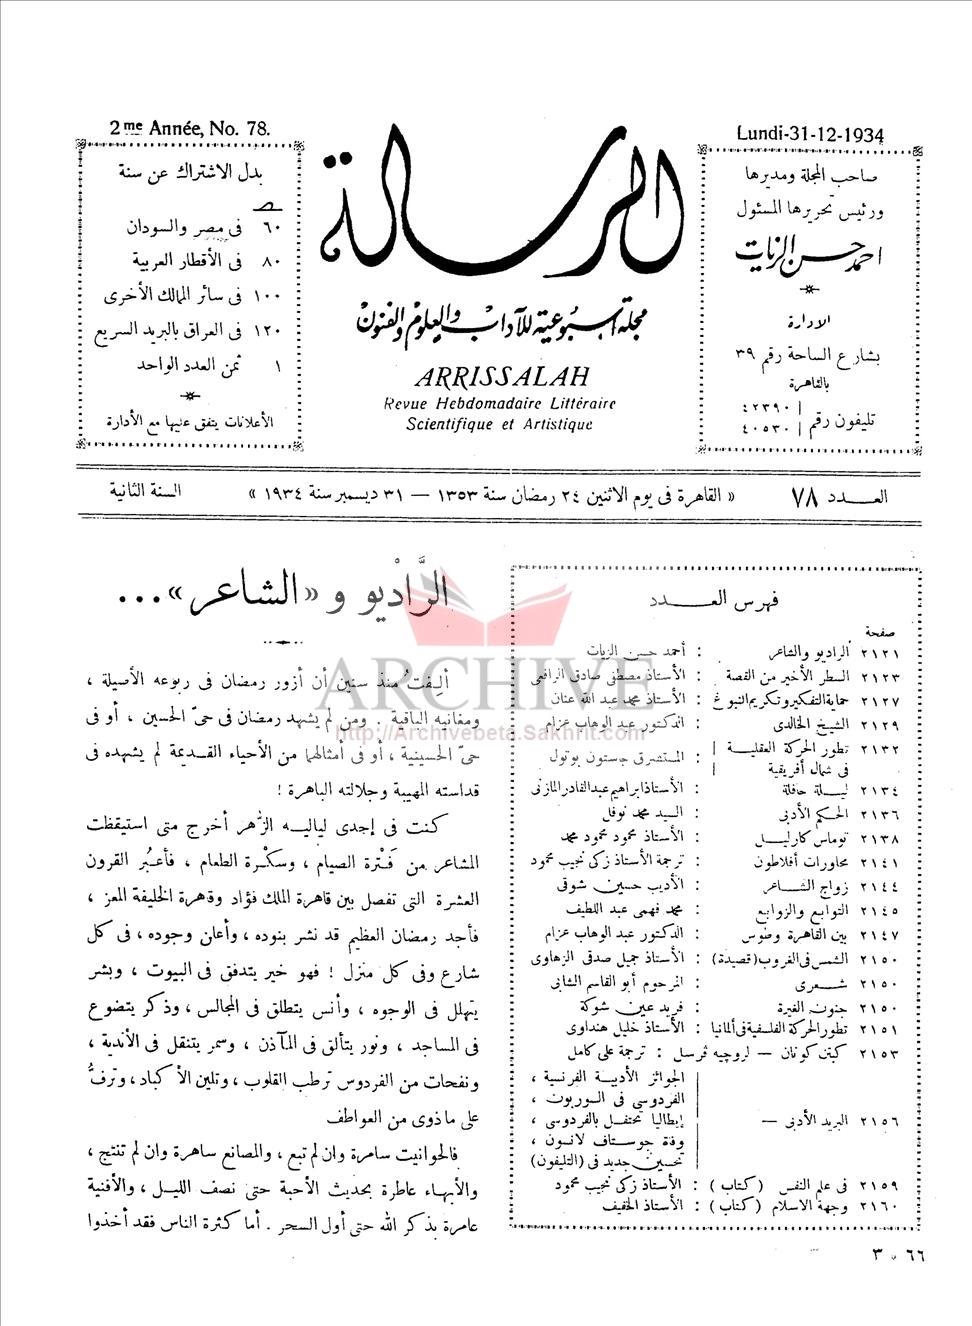 2me Année, No. 78.
Lundi-31-12-1934
صاحب المجلة ومديرها
ورئيس تحريرها المسئول
احمد حسن الزيات
الادارة
بشارع الساحة رقم ٣٩
بالقاهرة
تليفون رقم
٤٢٣٩٠
٤٠٥٣٠
الرسالة
مجلة أسبوعية للآداب والعلوم والفنون
ARRISSALAH
Revue Hebdomadaire Littéraire
Scientifique et Artistique
بدل الاشتراك عن سنة
ص
٦٠ فى مصر والسودان
٨٠ فى الأقطار العربية
١٠٠ فى سائر الممالك الأخرى
١٢٠ فى العراق بالبريد السريع
١ ثمن العدد الواحد
الأعلانات يتفق عليها مع الأدارة
العـــدد ٧٨
« القاهرة فى يوم الاثنين ٢٤ رمضان سنة ١٣٥٣ — ٣١ ديسمبر سنة ١٩٣٤ »
السنة الثانية
فهرس العــــدد
صفحة
٢١٢١ الراديو والشاعر : أحمد حسن الزيات
٢١٢٣ السطر الأخير من القصة : الأستاذ مصطفى صادق الرافعى
٢١٢٧ حماية التفكير وتكريم النبوغ : الأستاذ محمد عبد الله عنان
٢١٢٩ الشيخ الخالدى : الدكتور عبد الوهاب عزام
٢١٣٢ تطور الحركة العقلية فى شمال أفريقية : المستشرق جاستون بوتول
٢١٣٤ ليـــلة حافلة : الأستاذ ابراهيم عبد القادر المازنى
٢١٣٦ الحكم الأدبى : السيد محمد نوفل
٢١٣٨ توماس كارليـــل : الأستاذ محمود محمود محمد
٢١٤١ محاورات أفلاطون : ترجمة الأستاذ زكى نجيب محمود
٢١٤٤ زواج الشـــاعر : الأديب حسين شوقى
٢١٤٥ التوابع والزوابع : محمد فهمى عبد اللطيف
٢١٤٧ بين القاهرة وطوس : الدكتور عبد الوهاب عزام
٢١٥٠ الشمس فى الغروب (قصيدة) : الأستاذ جميل صدقى الزهاوى
٢١٥٠ شـــعرى : المرحوم أبو القاسم الشابى
٢١٥٠ جنون الغيرة : فريد عين شوكة
٢١٥١ تطور الحركة الفلسفية فى ألمانيا : الأستاذ خليل هنداوى
٢١٥٣ كيتى كونان — لروجيه فرسل : ترجمة على كامل
٢١٥٦ البريد الأدبى —
الجوائز الأدبية الفرنسية ،
الفردوسى فى السوربون ،
إيطاليا تحتفل بالفردوسى ،
وفاة جوستاف لانسون ،
تحسين جديد فى (التليفون)
٢١٥٩ فى علم النفس (كتاب) : الأستاذ زكى نجيب محمود
٢١٦٠ وجهة الاسلام (كتاب) : الأستاذ الخفيف
الرَّادْيو و «الشاعر»...
ألِفتُ منذ سنين أن أزور رمضان فى ربوعه الأصيلة ،
ومغانيه الباقية . ومن لم يشهد رمضان فى حىّ الحسين ، أو فى
حىّ الحسينية ، أو فى أمثالهما من الأحياء القديمة لم يشهده فى
قداسته المهيبة وجلالته الباهرة !
كنت فى إحدى لياليه الزُّهر أخرج متى استيقظت
المشاعر من فَتْرة الصيام ، وسكْرة الطعام ، فأعبُر القرون
العشرة التى تفصل بين قاهرة الملك فؤاد وقاهرة الخليفة المعز ،
فأجد رمضان العظيم قد نشر بنوده ، وأعلن وجوده ، فى كل
شارع وفى كل منزل ! فهو خير يتدفق فى البيوت ، وبشر
يتهلل فى الوجوه ، وأنس يتطلق فى المجالس ، وذكر يتضوع
فى المساجد ، ونور يتألق فى المآذن ، وسمر يتنقل فى الأندية ،
ونفحات من الفردوس ترطب القلوب ، وتلين الأكباد ، وترفُّ
على ما ذوى من العواطف
فالحوانيت سامرة وان لم تبع ، والمصانع ساهرة وان لم تنتج ،
والأبهاء عاطرة بحديث الأحبة حتى نصف الليــل ، والأفنية
عامرة بذكر الله حتى أول السحر . أما كثرة الناس فقد أخذوا
ARCHIVE
http://Archivebeta.Sakhrit.com